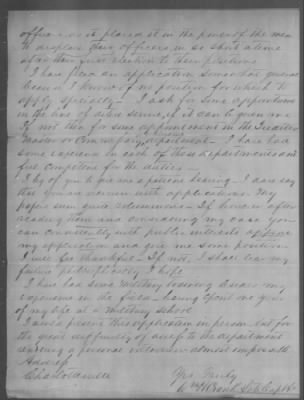 officer as it placed it in the power of the men
to displace their officers in so short a time
after their first election to their positions
I have filed an application somewhat general
because I know of no position for which to
apply specially. I ask for some appointment
in the line of active service, if it can be given me
If not then for some appointment in the
Master or Commissary department. I have had
some experience in each of these departments and
feel competent for the duties
I beg of you to give me a patient hearing. I dare say
that you are overrun with applications. My
papers seem quite voluminous. If however after
reading them and considering my case you
can consistently with public interests approve
my application and give me some position
I will be thankful. If not, I shall bear my
failure philosophically I hope
I have had some military training besides my
experience in the field having spent one year
of my life at a military school
I would present this application in person but for
the great difficulty of access to the department
rendering a personal interview almost impossible
Address Yrs Truly
Charlottesville Wm